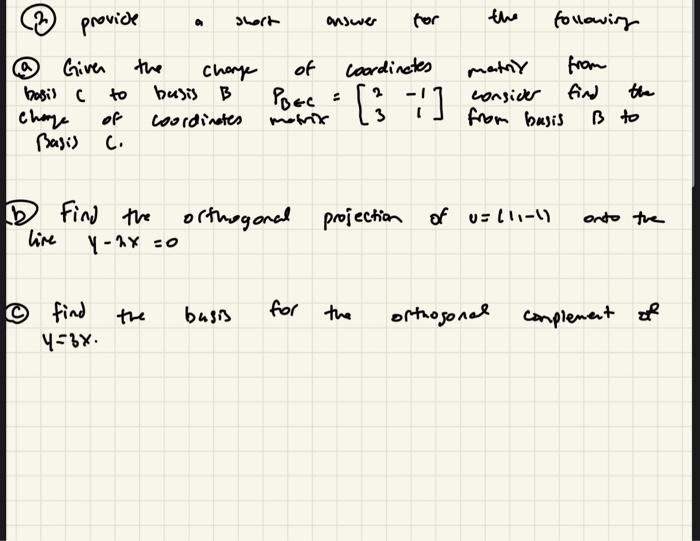 ② provide a short answer for the following
ⓐ Given the change of coordinates matrix from
basis C to basis B P_{B←C} = [2 -1; 3 1] consider find the
change of coordinates matrix from basis B to
Basis C.
ⓑ Find the orthogonal projection of u = (1,-1) onto the
line y - 2x = 0
ⓒ find the basis for the orthogonal complement of
y = 3x.